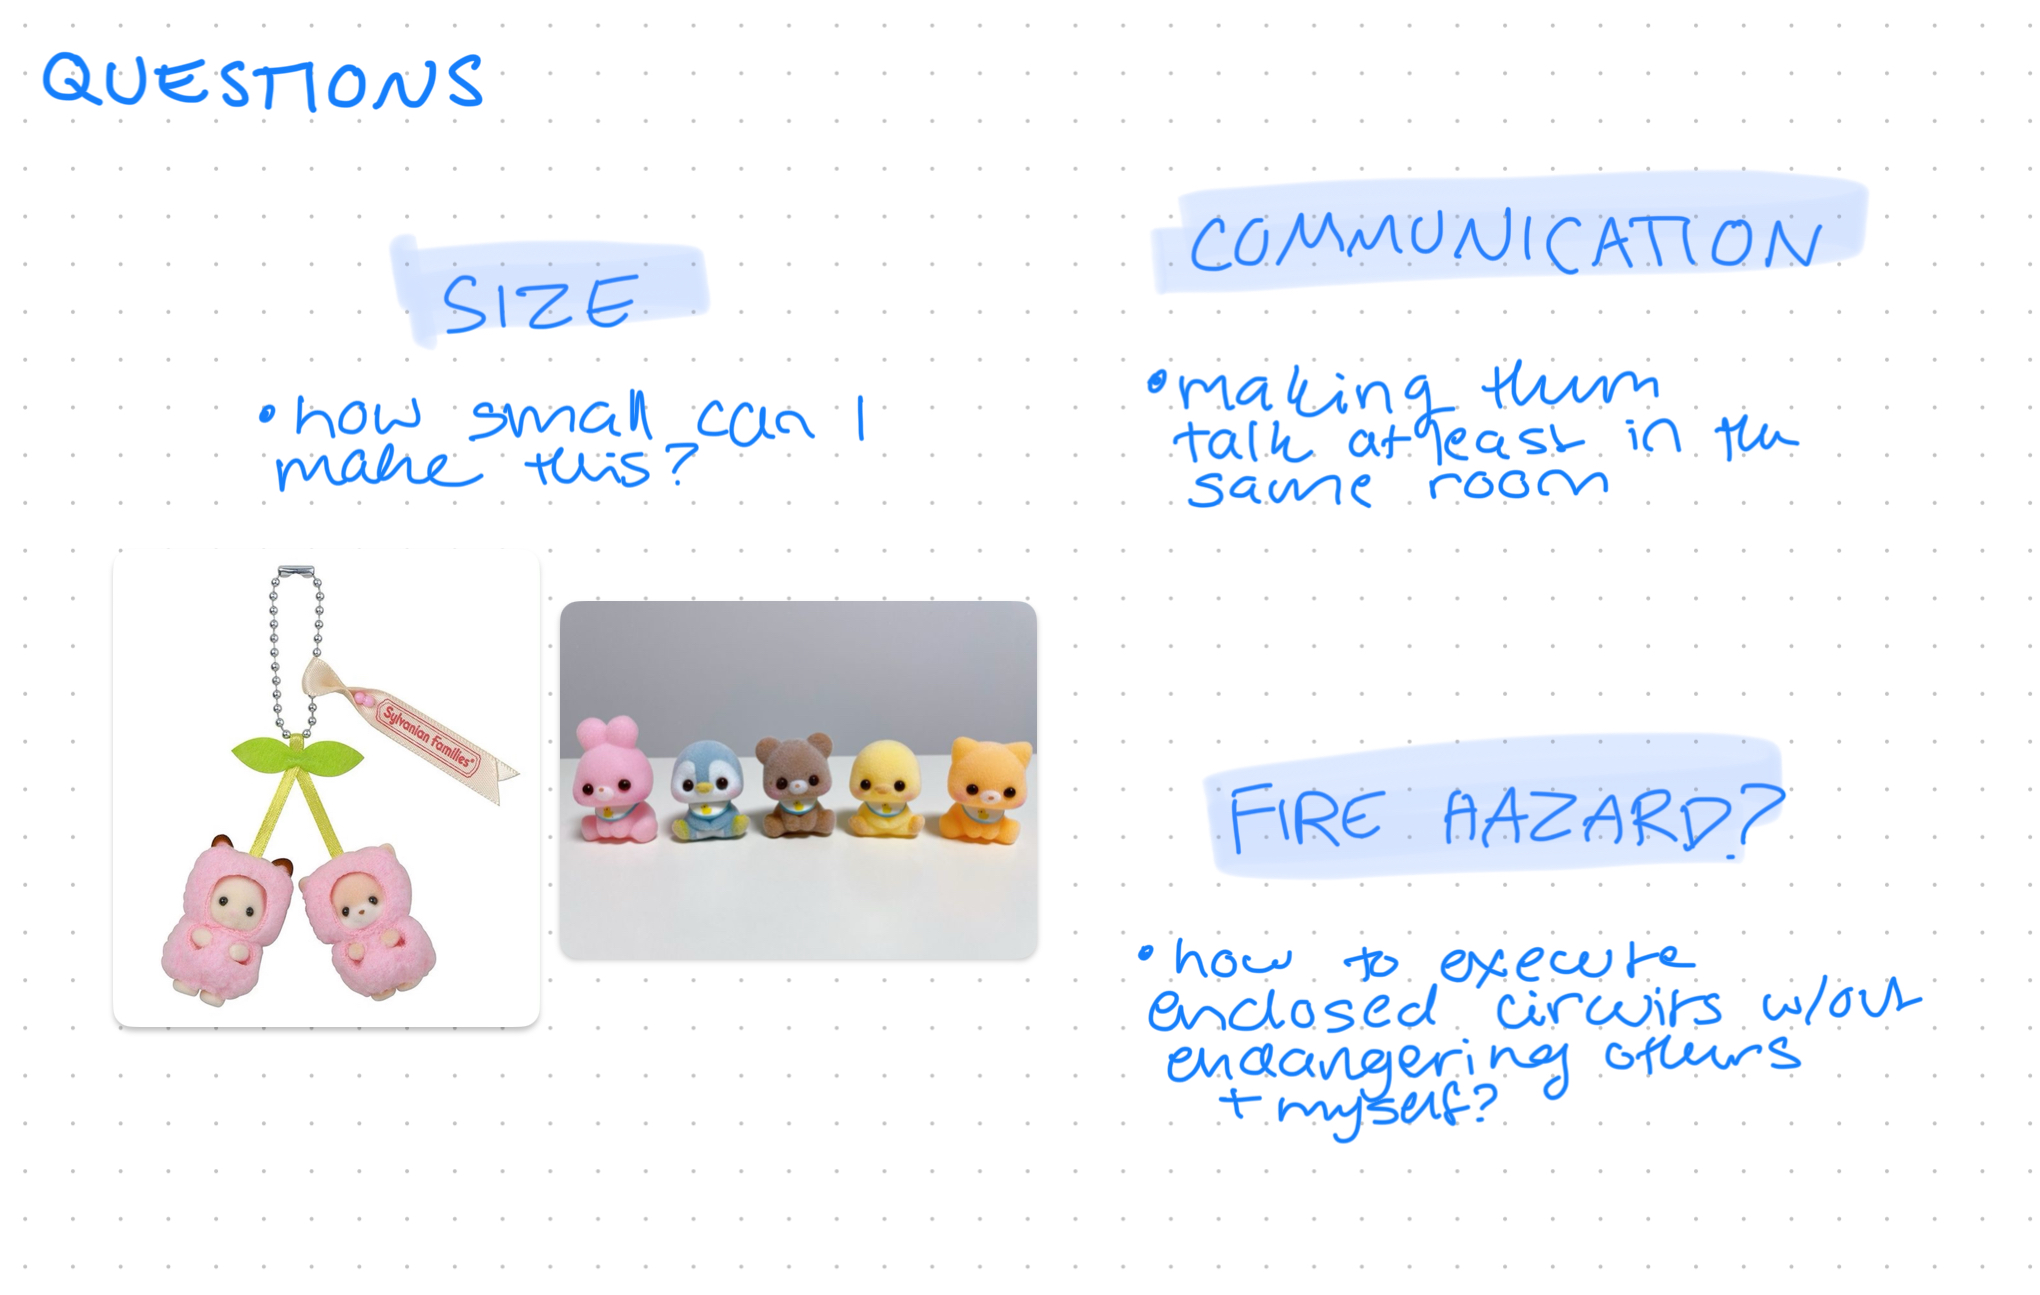 QUESTIONS
SIZE
• how small can I
make this?
Sylvanian Families
COMMUNICATION
• making them
talk at least in the
same room
FIRE HAZARD?
• how to execute
enclosed circuits w/out
endangering others
+ myself?